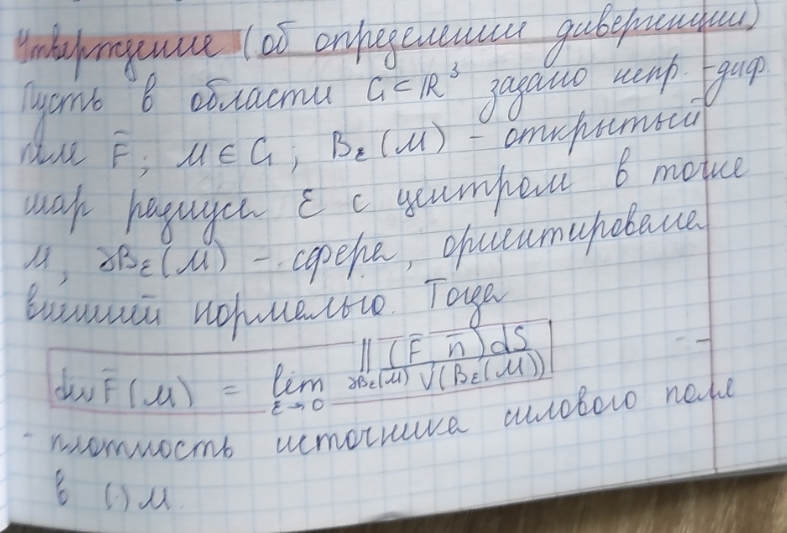 Утверждение (об определении дивергенции)
Пусть в области G⊂ℝ³ задано непр.-диф.
поле F̄; M∈G; Bε(M) - открытый
шар радиуса ε с центром в точке
M, ∂Bε(M) - сфера, ориентирована
внешней нормалью. Тогда
div F̄(M) = lim ε→0 ∬ ∂Bε(M) (F̄, n̄)dS / V(Bε(M))
- плотность источника силового поля
в (·) M.